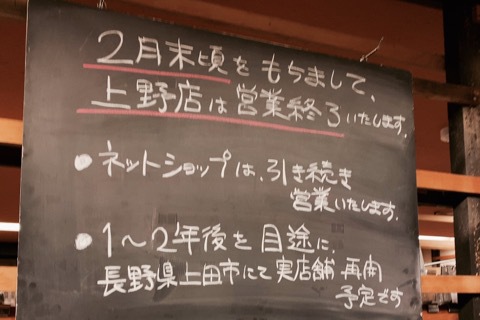 2月末頃をもちまして、
上野店は営業終了いたします。
・ネットショップは、引き続き
営業いたします。
・1〜2年後を目途に、
長野県上田市にて実店舗再開
予定です